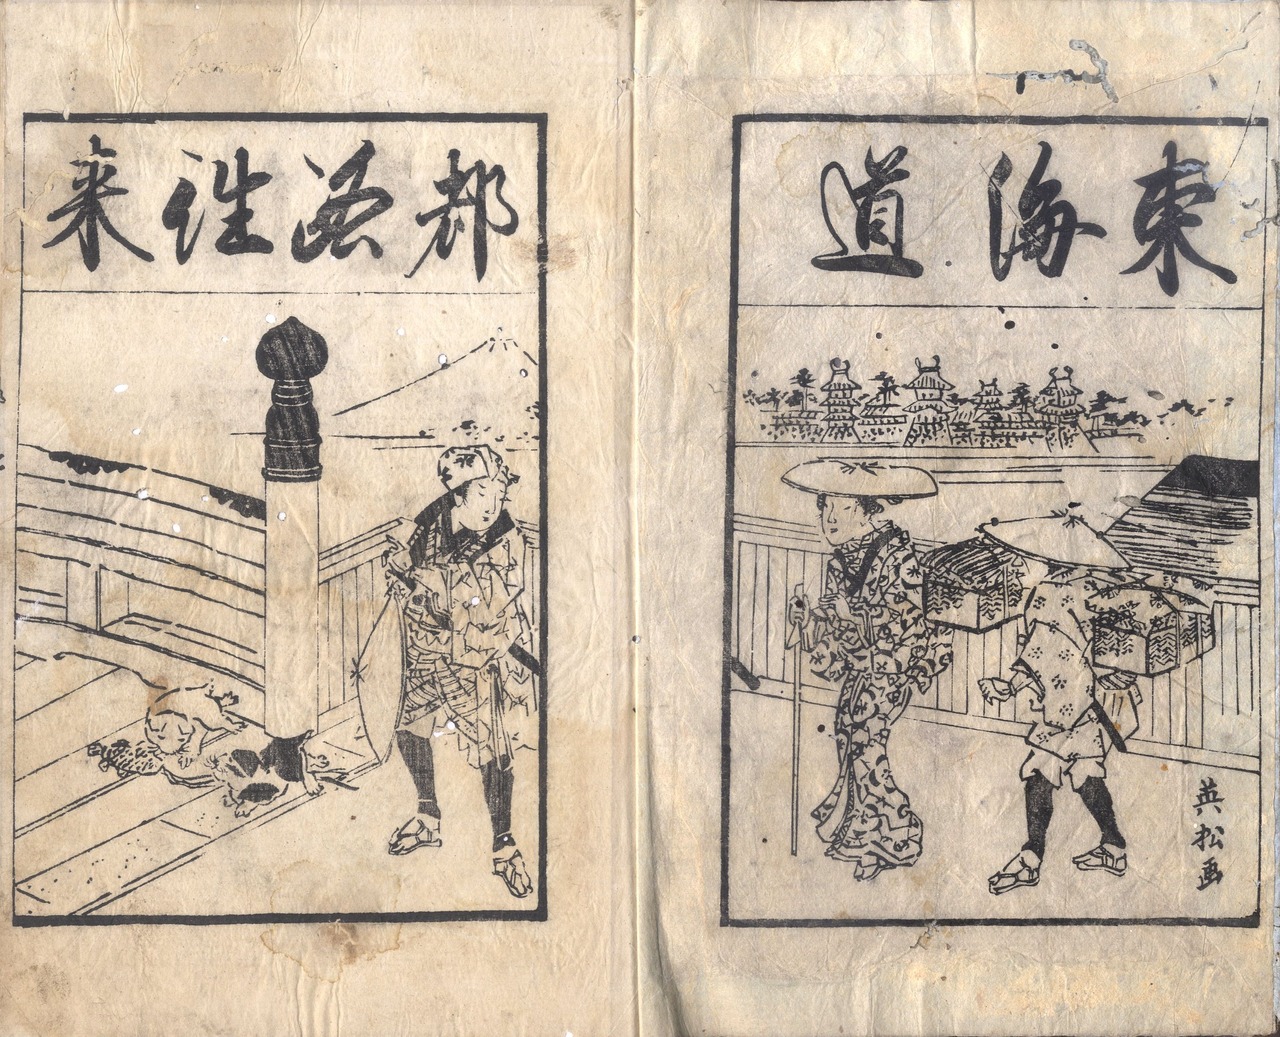 東海道
英松画
都路往来